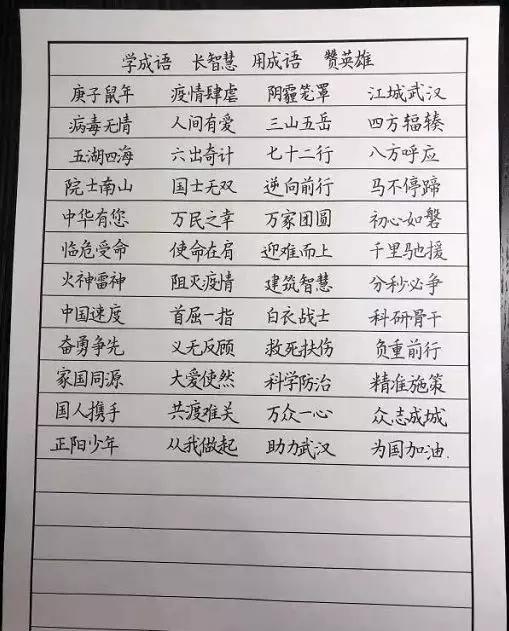 学成语 长智慧 用成语 赞英雄
庚子鼠年 疫情肆虐 阴霾笼罩 江城武汉
病毒无情 人间有爱 三山五岳 四方辐辏
五湖四海 六出奇计 七十二行 八方呼应
院士南山 国士无双 逆向前行 马不停蹄
中华有您 万民之幸 万家团圆 初心如磐
临危受命 使命在肩 迎难而上 千里驰援
火神雷神 阻灭疫情 建筑智慧 分秒必争
中国速度 首屈一指 白衣战士 科研骨干
奋勇争先 义无反顾 救死扶伤 负重前行
家国同源 大爱使然 科学防治 精准施策
国人携手 共渡难关 万众一心 众志成城
正阳少年 从我做起 助力武汉 为国加油.